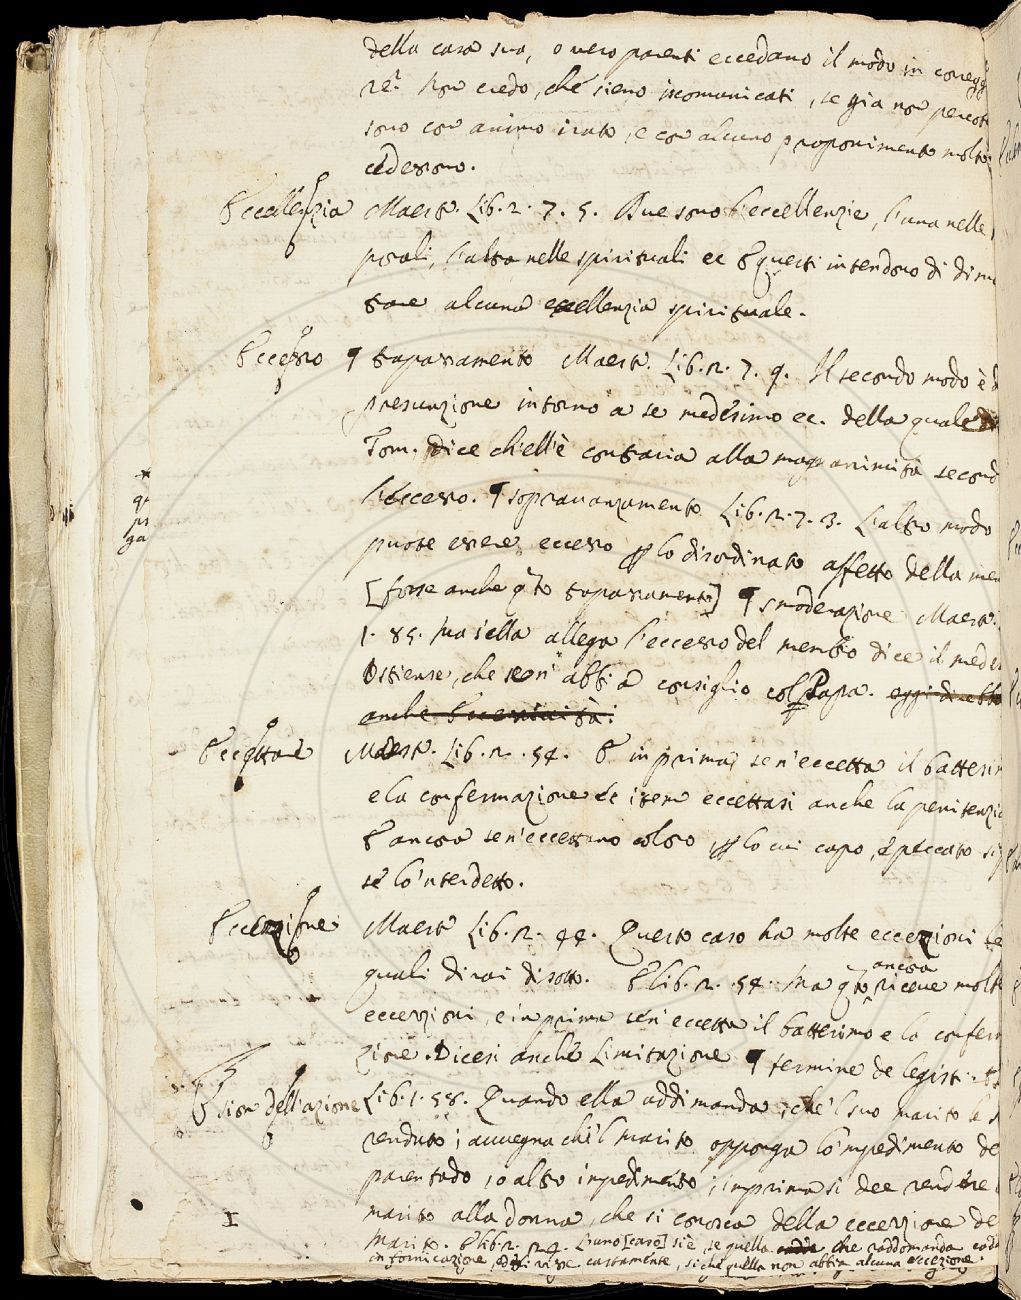 della casa sua, o vero parenti eccedano il modo in corregg
re? Non credo, che sieno iscomunicati, se gia non percot
sono con animo irato, e con alcuno proponimento molto
cedessono.
Eccellenzia Maestr. Lib. 2. 7. 5. Due sono l'eccellenzie, l'una nelle
porali, l'altra nelle spirituali ec E questi intendono di dimo
strare alcuna eccellenzia spirituale.
Eccesso ¶ trapassamento Maestr. Lib. 2. 7. 9. Il secondo modo è d
presunzione intorno a se medesimo ec. della quale
Tom. dice ch'ell'è contraria alla magnanimità second
l'eccesso. ¶ sopravanzamento Lib. 2. 7. 3. L'altro modo
puote essere eccesso p lo disordinato affetto della men
[forse anche qto trapassamento] ¶ smoderazione Maestr.
1. 85. Ma s'ella allega l'eccesso del membro dice il mede
Ostiense, che sen' abbia consiglio col Papa. oggi direbbe
anche
Eccettare Maestr. Lib. 2. 54. E in prima se n'eccetta il battesim
e la confermazione ec item eccettasi anche la penitenzia
E ancora se n'eccettano coloro, p lo cui capo, e peccato
se lo 'nterdetto.
Eccezzione Maestr Lib. 2. 44. Questo caso ha molte eccezzioni le
quali dirai di sotto. E lib. 2. 54. Ma qto ancora riceve molte
eccezzioni, e in prima se n'eccetta il battesimo e la conferm
zione. Dicesi anche Limitazione ¶ termine de legisti.
Lib. 1. 58. Quando ella addimanda, che 'l suo marito le s
renduto; avvegna che 'l marito opponga lo 'mpedimento de
parentado, o altro impedimento, imprima si dee rendere
marito alla donna, che si conosca della eccezzione de
marito. E lib. 2. 29. L'uno [caso] si è, se quella che raddomanda
in fornicazione, ed vive castamente, sichè quella non abbia alcuna eccezione.